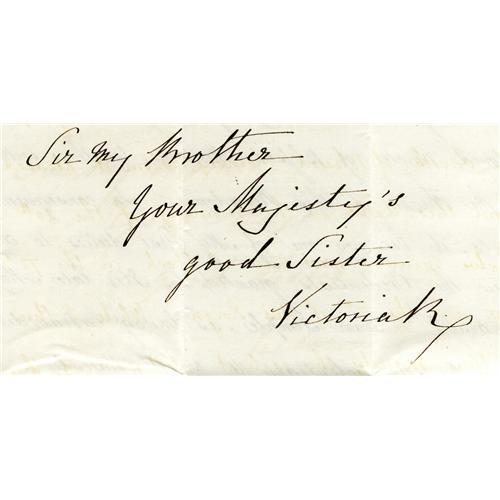 Sir my Brother
Your Majesty's
good Sister
Victoria R